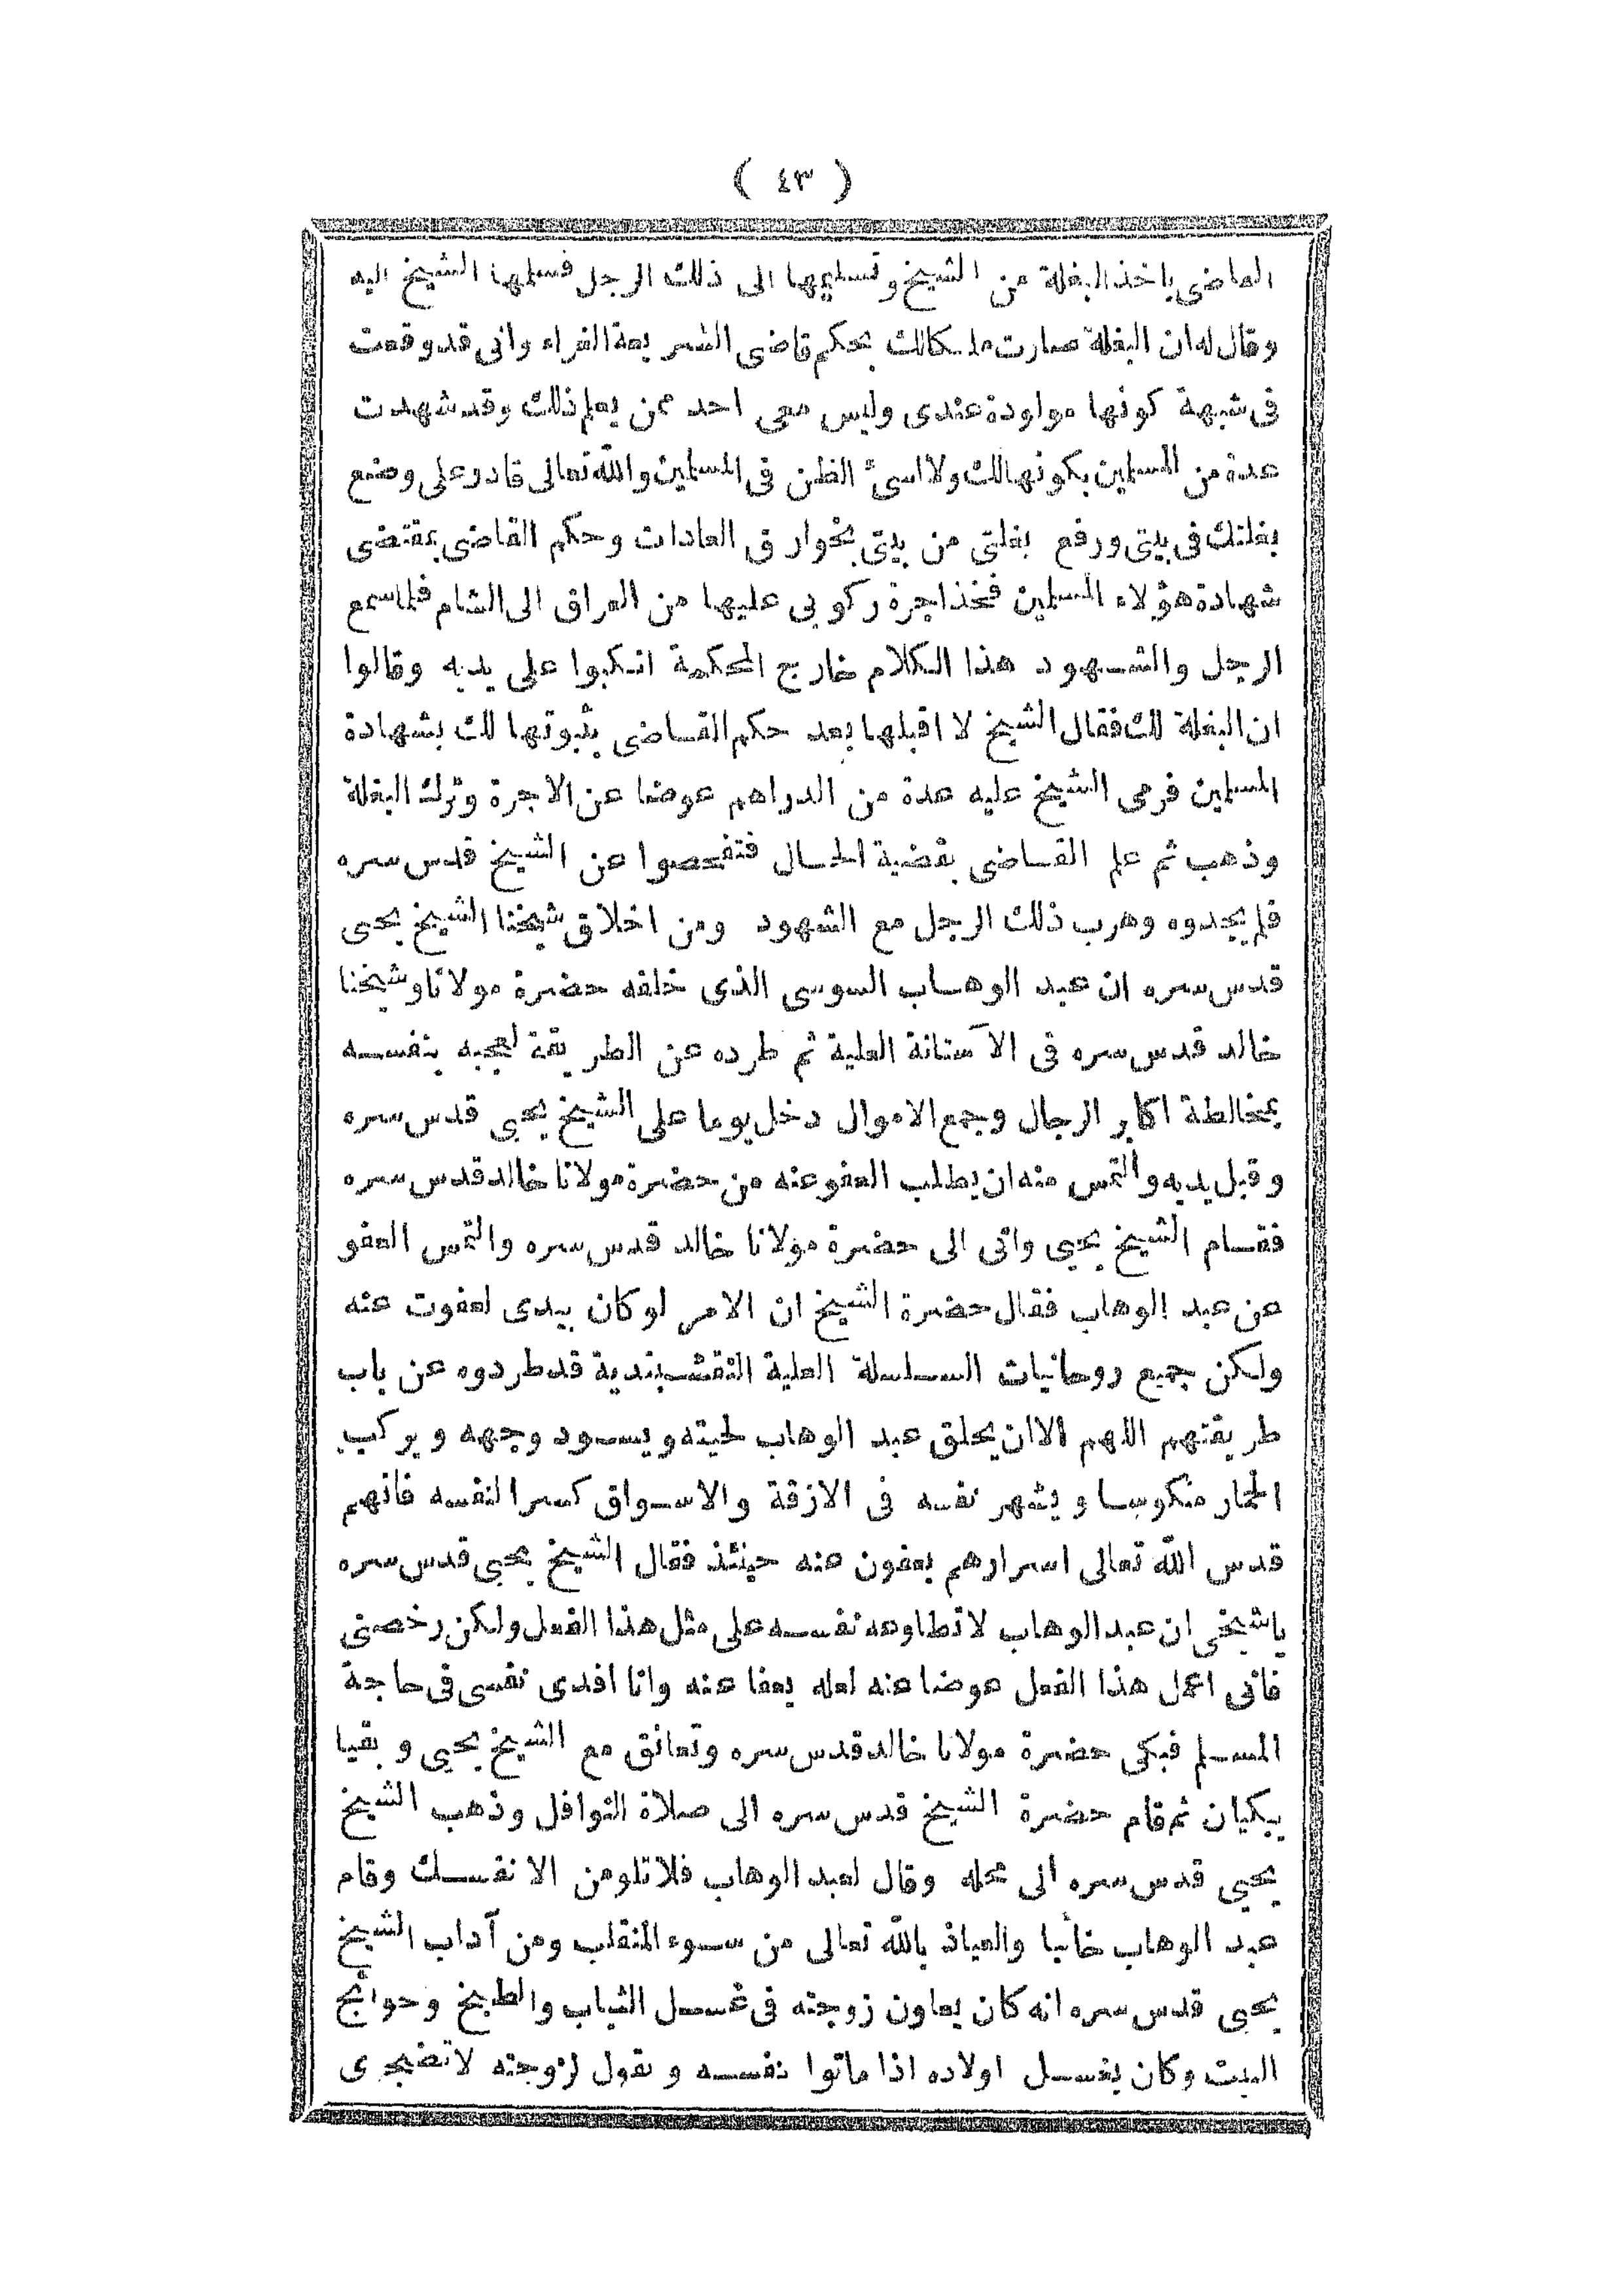 ( ٤٣ )
القاضى باخذ البغلة من الشيخ وتسليمها الى ذلك الرجل فسلمها الشيخ اليه
وقال له ان البغلة صارت ملكالك بحكم قاضى الشريعة الغراء وانى قد وقعت
فى شبهة كونها مولودة عندى وليس معى احد ممن يعلم ذلك وقد شهدت
عدة من المسلمين بكونها لك ولا اسئ الظن فى المسلمين والله تعالى قادر على وضع
بغلتك فى بيتى ورفع بغلتى من بيتى بخوارق العادات وحكم القاضى بمقتضى
شهادة هؤلاء المسلمين فخذ اجرة ركوبى عليها من العراق الى الشام فلما سمع
الرجل والشهود هذا الكلام خارج المحكمة انكبوا على يديه وقالوا
ان البغلة لك فقال الشيخ لا اقبلها بعد حكم القاضى بثبوتها لك بشهادة
المسلمين فرمى الشيخ عليه عدة من الدراهم عوضا عن الاجرة وترك البغلة
وذهب ثم علم القاضى بقضية الحال فتفحصوا عن الشيخ قدس سره
فلم يجدوه وهرب ذلك الرجل مع الشهود ومن اخلاق شيخنا الشيخ يحيى
قدس سره ان عبد الوهاب السوسى الذى خلفه حضرة مولانا وشيخنا
خالد قدس سره فى الآستانة العلية ثم طرده عن الطريقة لعجبه بنفسه
بمخالطة اكابر الرجال وجمع الاموال دخل يوما على الشيخ يحيى قدس سره
وقبل يديه والتمس منه ان يطلب العفو عنه من حضرة مولانا خالد قدس سره
فقام الشيخ يحيى واتى الى حضرة مولانا خالد قدس سره والتمس العفو
عن عبد الوهاب فقال حضرة الشيخ ان الامر لو كان بيدى لعفوت عنه
ولكن جميع روحانيات السلسلة العلية النقشبندية قد طردوه عن باب
طريقتهم اللهم الا ان يحلق عبد الوهاب لحيته ويسود وجهه ويركب
الحمار منكوسا ويشهر نفسه فى الازقة والاسواق كسرا لنفسه فانهم
قدس الله تعالى اسرارهم يعفون عنه حينئذ فقال الشيخ يحيى قدس سره
يا شيخى ان عبد الوهاب لا تطاوعه نفسه على مثل هذا الفعل ولكن رخصنى
فانى اعمل هذا الفعل عوضا عنه لعله يعفا عنه وانا افدى نفسى فى حاجة
المسلم فبكى حضرة مولانا خالد قدس سره وتعانق مع الشيخ يحيى وبقيا
يبكيان ثم قام حضرة الشيخ قدس سره الى صلاة النوافل وذهب الشيخ
يحيى قدس سره الى محله وقال لعبد الوهاب فلا تلومن الا نفسك وقام
عبد الوهاب خائبا والعياذ بالله تعالى من سوء المنقلب ومن آداب الشيخ
يحيى قدس سره انه كان يعاون زوجته فى غسل الثياب والطبخ وحوائج
البيت وكان يغسل اولاده اذا ماتوا بنفسه ويقول لزوجته لا تضجرى